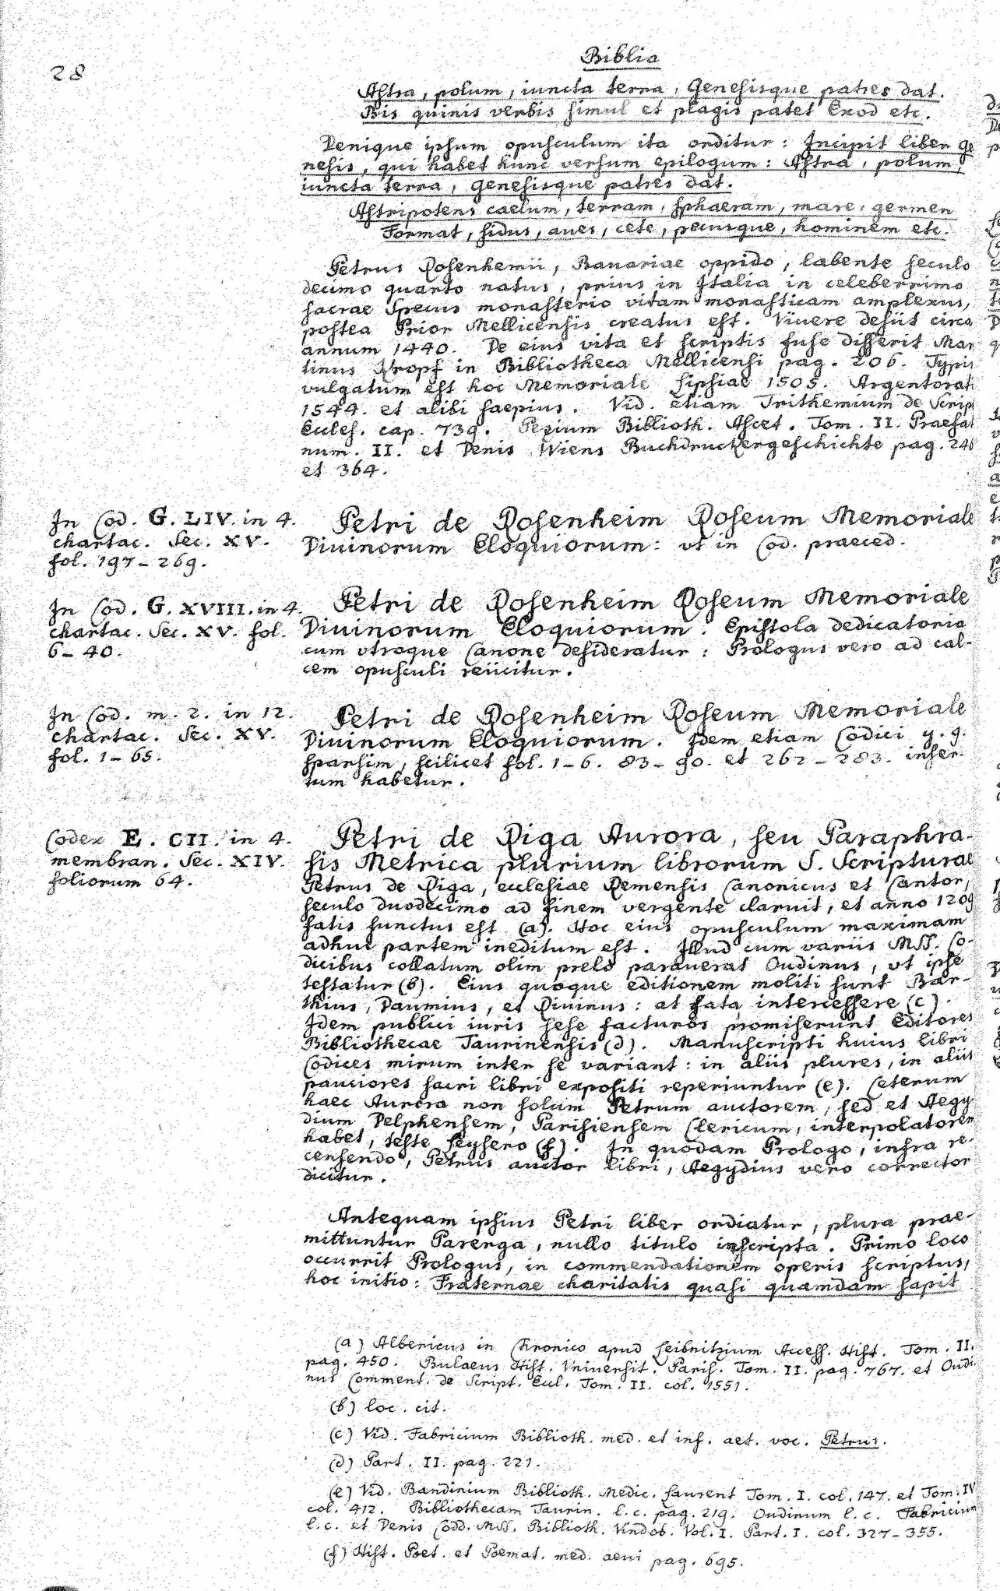 28
Biblia
Astra, polum, iuncta terra, Genesisque patres dat.
Bis quinis verbis simul et plagis patet Exod etc.
Denique ipsum opusculum ita orditur: Incipit liber Ge
nesis, qui habet hunc versum epilogum: Astra, polum,
iuncta terra, Genesisque patres dat.
Astripotens caelum, terram, sphaeram, mare, germen
Format, sidus, aues, cete, pecusque, hominem etc.
Petrus Rosenhemii, Bauariae oppido, labente seculo
decimo quarto natus, prius in Italia in celeberrimo
sacrae Specus monasterio vitam monasticam amplexus,
postea Prior Mellicensis creatus est. Viuere desiit circa
annum 1440. De eius vita et scriptis fuse disserit Mar
tinus Kropf in Bibliotheca Mellicensi pag. 206. Typis
vulgatum est hoc Memoriale Lipsiae 1505. Argentorati
1544. et alibi saepius. Vid. etiam Trithemium de Scrip
Eccles. cap. 739. Pezium Biblioth. Ascet. Tom. II. Praefat
num. II. et Denis Wiens Buchdruckergeschichte pag. 248
et 364.
In Cod. G. LIV. in 4.
chartac. Sec. XV.
fol. 197-269.
Petri de Rosenheim Roseum Memoriale
Diuinorum Eloquiorum: vt in Cod. praeced.
In Cod. G. XVIII. in 4.
chartac. Sec. XV. fol.
6-40.
Petri de Rosenheim Roseum Memoriale
Diuinorum Eloquiorum. Epistola dedicatoria
cum vtroque Canone desideratur: Prologus vero ad cal-
cem opusculi reiicitur.
In Cod. m. 2. in 12.
chartac. Sec. XV.
fol. 1-65.
Petri de Rosenheim Roseum Memoriale
Diuinorum Eloquiorum. Idem etiam Codici y. g.
sparsim, scilicet fol. 1-6. 83-90. et 262-283. inser
tum habetur.
Codex E. CII. in 4.
membran. Sec. XIV.
foliorum 64.
Petri de Riga Aurora, seu Paraphra-
sis Metrica plurium librorum S. Scripturae
Petrus de Riga, ecclesiae Remensis Canonicus et Cantor,
seculo duodecimo ad finem vergente claruit, et anno 1209
fatis functus est (a). Hoc eius opusculum maximam
adhuc partem ineditum est. Illud cum variis MSS. Co-
dicibus collatum olim prelo parauerat Oudinus, vt ipse
testatur (b). Eius quoque editionem moliti sunt Bar-
thius, Daumius, et Diuinus: at fata intercessere (c).
Idem publici iuris sese facturos promiserunt Editores
Bibliothecae Taurinensis (d). Manuscripti huius libri
Codices mirum inter se variant: in aliis plures, in aliis
pauciores sacri libri expositi reperiuntur (e). Ceterum
haec Aurora non solum Petrum auctorem, sed et Aegy
dium Delphensem, Parisiensem Clericum, interpolatorem
habet, teste Leysero (f). In quodam Prologo, infra re-
censendo, Petrus auctor libri, Aegydius vero corrector
dicitur.
Antequam ipsius Petri liber ordiatur, plura prae-
mittuntur Parerga, nullo titulo inscripta. Primo loco
occurrit Prologus, in commendationem operis scriptus,
hoc initio: Fraternae charitatis quasi quamdam sapit
(a) Albericus in Chronico apud Leibnitzium Access. Hist. Tom. II.
pag. 450. Bulaeus Hist. Vniuersit. Paris. Tom. II. pag. 767. et Oudi
nus Comment. de Script. Eccl. Tom. II. col. 1551.
(b) loc. cit.
(c) Vid. Fabricium Biblioth. med. et inf. aet. voc. Petrus.
(d) Part. II. pag. 221.
(e) Vid. Bandinium Biblioth. Medic. Laurent Tom. I. col. 147. et Tom. IV
col. 412. Bibliothecam Taurin. l. c. pag. 219. Oudinum l. c. Fabricium
l. c. et Denis Codd. MSS. Biblioth. Vindob. Vol. I. Part. I. col. 327-355.
(f) Hist. Poet. et Poemat. med. aeui pag. 695.